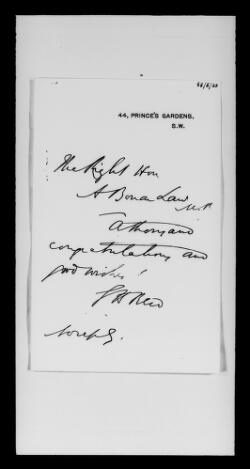 44, PRINCE'S GARDENS,
S.W.
The Right Hon
A Bonar Law
M.P.
A thousand
congratulations and
good wishes!